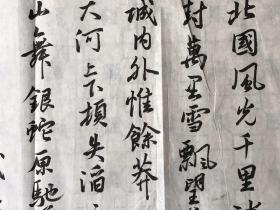 北國風光千里
封萬里雪飄望
城内外惟餘莽
大河上下頓失滔
山舞銀蛇原馳